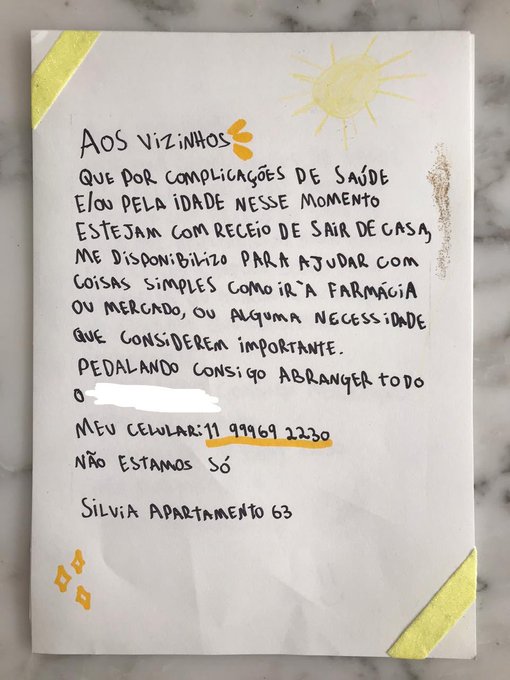 AOS VIZINHOS
QUE POR COMPLICAÇÕES DE SAÚDE
E/OU PELA IDADE NESSE MOMENTO
ESTEJAM COM RECEIO DE SAIR DE CASA,
ME DISPONIBILIZO PARA AJUDAR COM
COISAS SIMPLES COMO IR À FARMÁCIA
OU MERCADO, OU ALGUMA NECESSIDADE
QUE CONSIDEREM IMPORTANTE.
PEDALANDO CONSIGO ABRANGER TODO
O
MEU CELULAR: 11 99969 2230
NÃO ESTAMOS SÓ
SILVIA APARTAMENTO 63